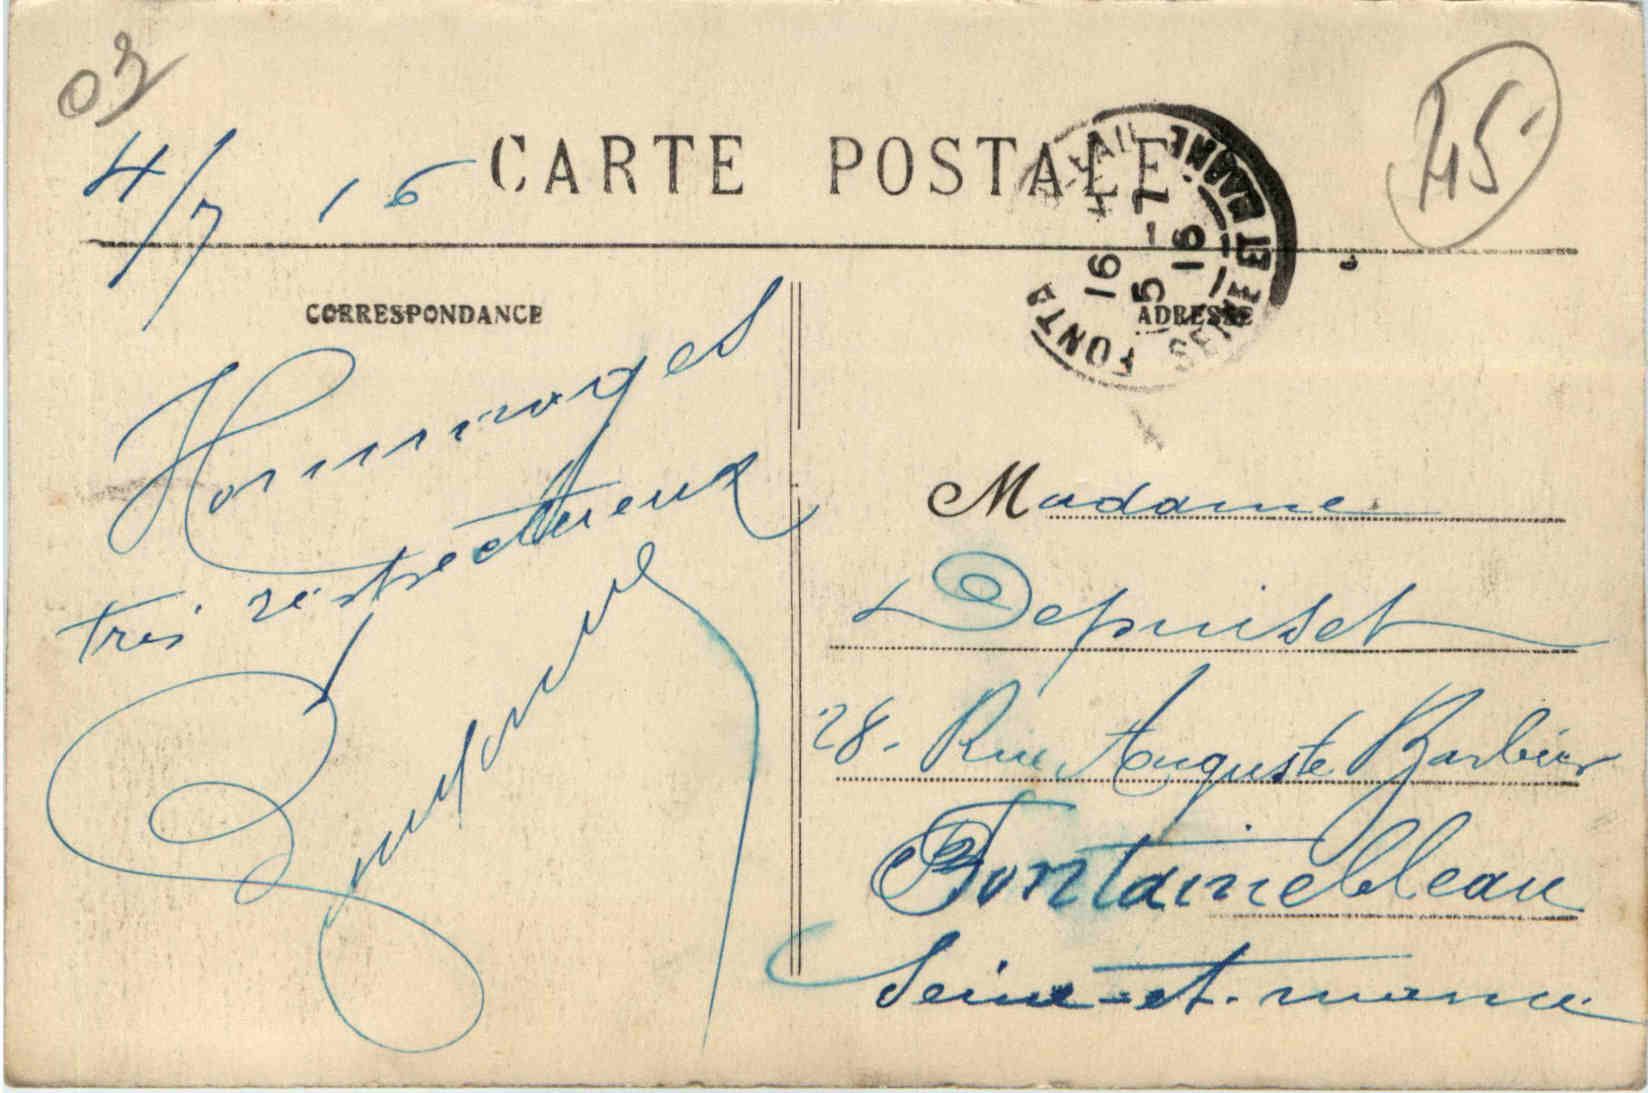 03
45
4/7 16
CARTE POSTALE
CORRESPONDANCE
Hommages
très respectueux
FONTA
16
5 - 7
16
SEINE ET MARNE
ADRESSE
Madame
Depuiset
28 - Rue Auguste Barbier
Fontainebleau
Seine-et-marne